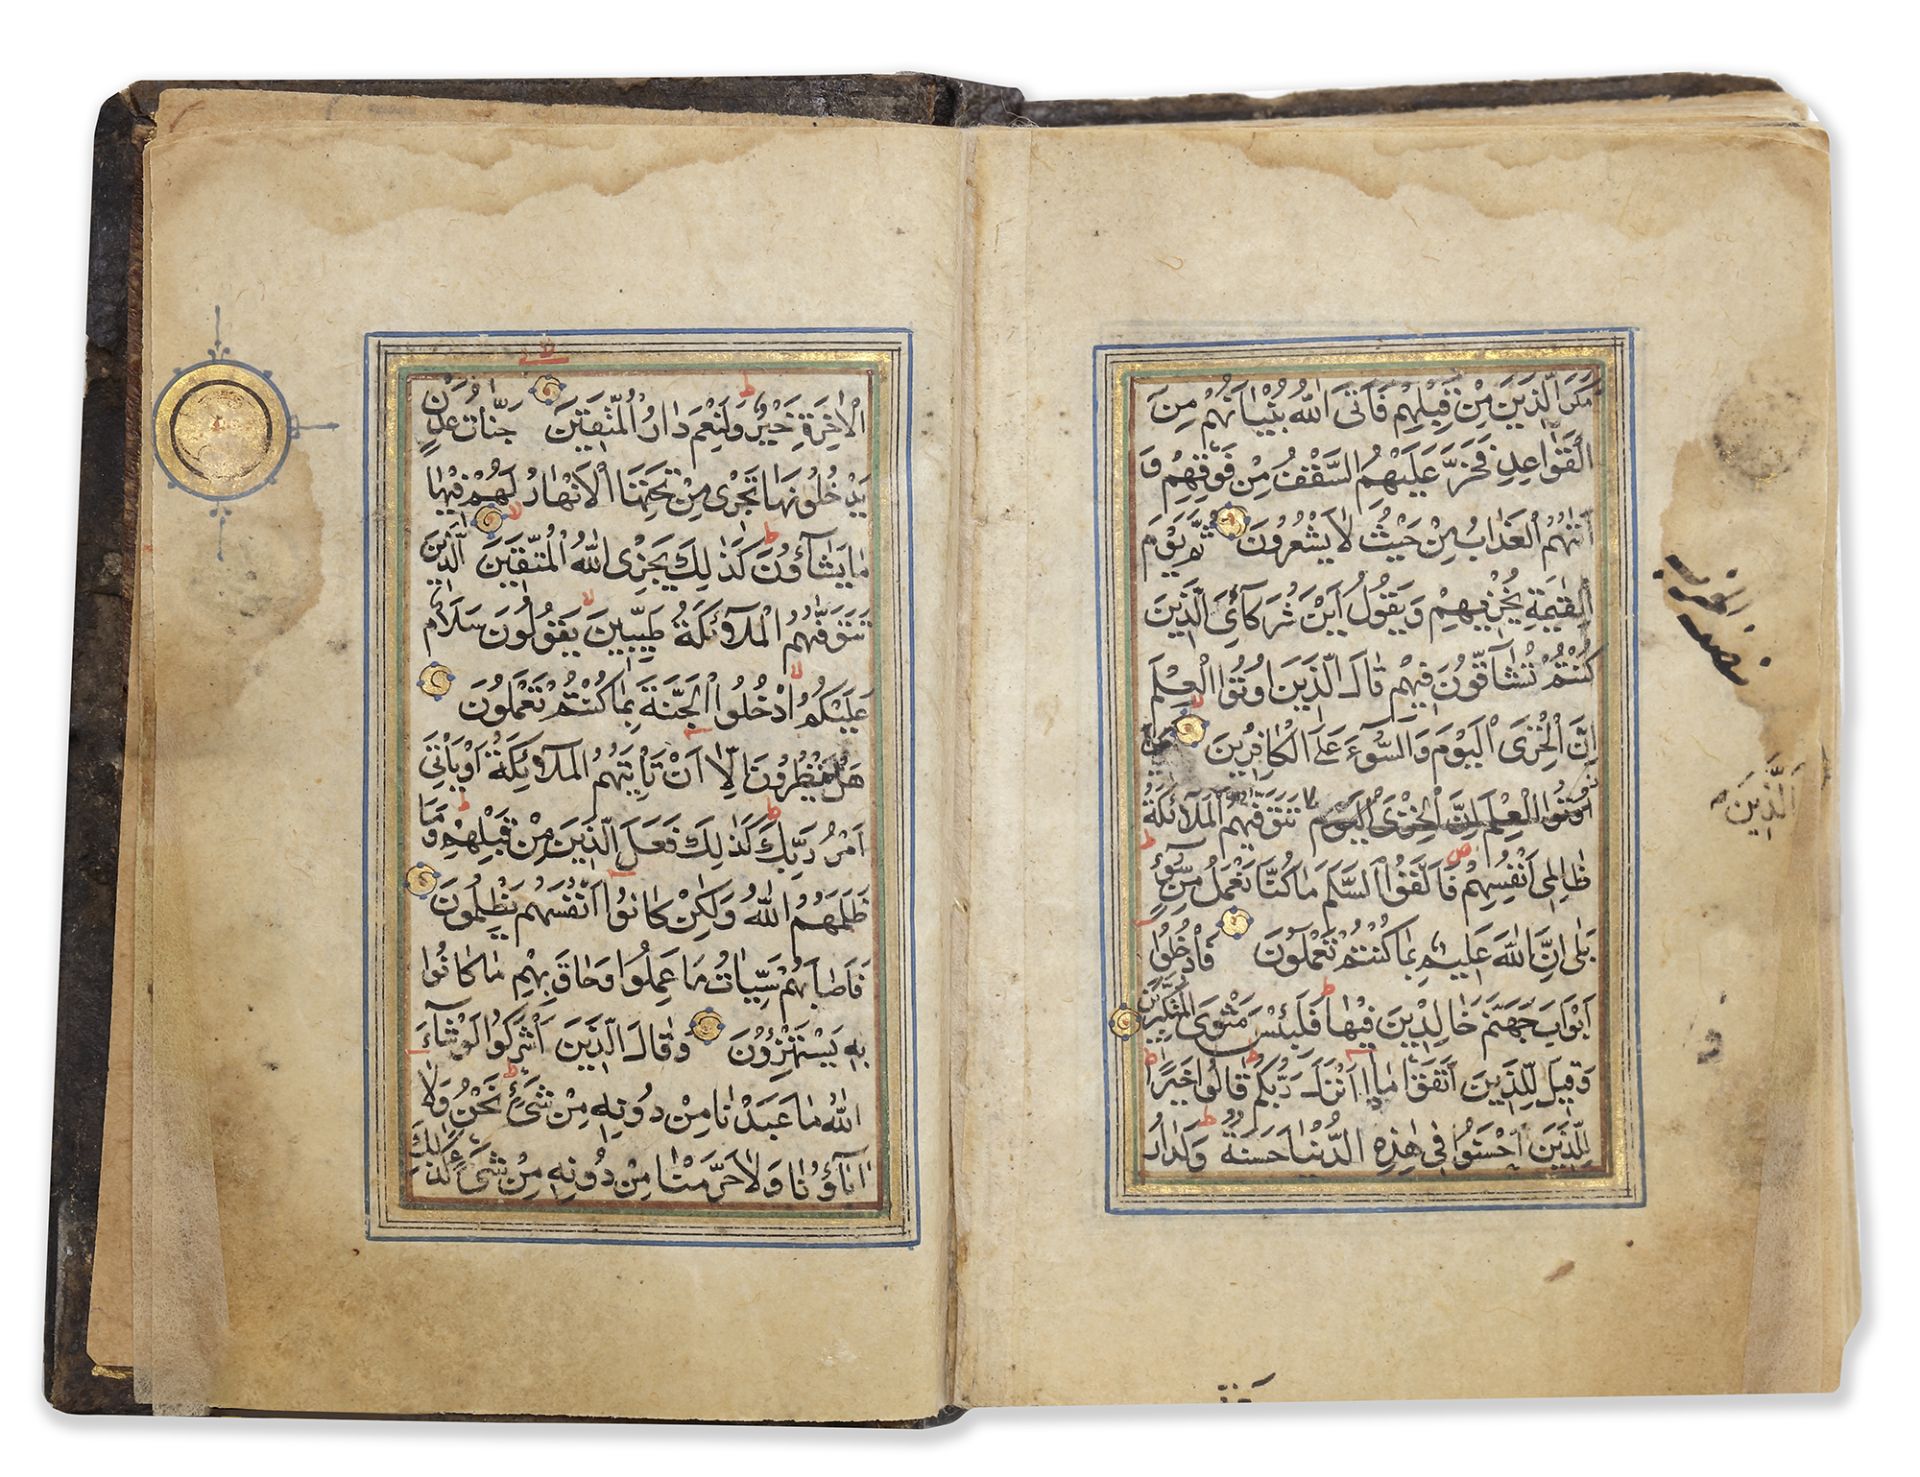 مَكَرَ الَّذِينَ مِنْ قَبْلِهِمْ فَاَتَى اللّٰهُ بُنْيَانَهُمْ مِنَ
الْقَوَاعِدِ فَخَرَّ عَلَيْهِمُ السَّقْفُ مِنْ فَوْقِهِمْ وَ
اَتٰهُمُ الْعَذَابُ مِنْ حَيْثُ لَا يَشْعُرُونَ ثُمَّ يَوْمَ
الْقِيٰمَةِ يُخْزِيهِمْ وَيَقُولُ اَيْنَ شُرَكَآئِيَ الَّذِينَ
كُنْتُمْ تُشَآقُّونَ فِيهِمْ قَالَ الَّذِينَ اُوتُوا الْعِلْمَ
اِنَّ الْخِزْيَ الْيَوْمَ وَالسُّوءَ عَلَى الْكَافِرِينَ
اُوتُوا الْعِلْمَ اِنَّ الْخِزْيَ الْيَوْمَ تَتَوَفّٰيهُمُ الْمَلَآئِكَةُ
ظَالِمِي اَنْفُسِهِمْ فَاَلْقَوُا السَّلَمَ مَا كُنَّا نَعْمَلُ مِنْ سُوءٍ
بَلٰى اِنَّ اللّٰهَ عَلِيمٌ بِمَا كُنْتُمْ تَعْمَلُونَ فَادْخُلُوا
اَبْوَابَ جَهَنَّمَ خَالِدِينَ فِيهَا فَلَبِئْسَ مَثْوَى الْمُتَكَبِّرِينَ
وَقِيلَ لِلَّذِينَ اتَّقَوْا مَاذَا اَنْزَلَ رَبُّكُمْ قَالُوا خَيْرًا
لِلَّذِينَ اَحْسَنُوا فِي هٰذِهِ الدُّنْيَا حَسَنَةٌ وَلَدَارُ
نصف الحزب
الَّذِينَ
الْاٰخِرَةِ خَيْرٌ وَلَنِعْمَ دَارُ الْمُتَّقِينَ جَنَّاتُ عَدْنٍ
يَدْخُلُونَهَا تَجْرِي مِنْ تَحْتِهَا الْاَنْهَارُ لَهُمْ فِيهَا
مَا يَشَآؤُنَ كَذٰلِكَ يَجْزِي اللّٰهُ الْمُتَّقِينَ الَّذِينَ
تَتَوَفّٰهُمُ الْمَلَآئِكَةُ طَيِّبِينَ يَقُولُونَ سَلَامٌ
عَلَيْكُمُ ادْخُلُوا الْجَنَّةَ بِمَا كُنْتُمْ تَعْمَلُونَ
هَلْ يَنْظُرُونَ اِلَّا اَنْ تَاْتِيَهُمُ الْمَلَآئِكَةُ اَوْ يَاْتِيَ
اَمْرُ رَبِّكَ كَذٰلِكَ فَعَلَ الَّذِينَ مِنْ قَبْلِهِمْ وَمَا
ظَلَمَهُمُ اللّٰهُ وَلٰكِنْ كَانُوا اَنْفُسَهُمْ يَظْلِمُونَ
فَاَصَابَهُمْ سَيِّئَاتُ مَا عَمِلُوا وَحَاقَ بِهِمْ مَا كَانُوا
بِهِ يَسْتَهْزِؤُنَ وَقَالَ الَّذِينَ اَشْرَكُوا لَوْ شَآءَ
اللّٰهُ مَا عَبَدْنَا مِنْ دُونِهِ مِنْ شَيْءٍ نَحْنُ وَلَا
اٰبَآؤُنَا وَلَا حَرَّمْنَا مِنْ دُونِهِ مِنْ شَيْءٍ كَذٰلِكَ